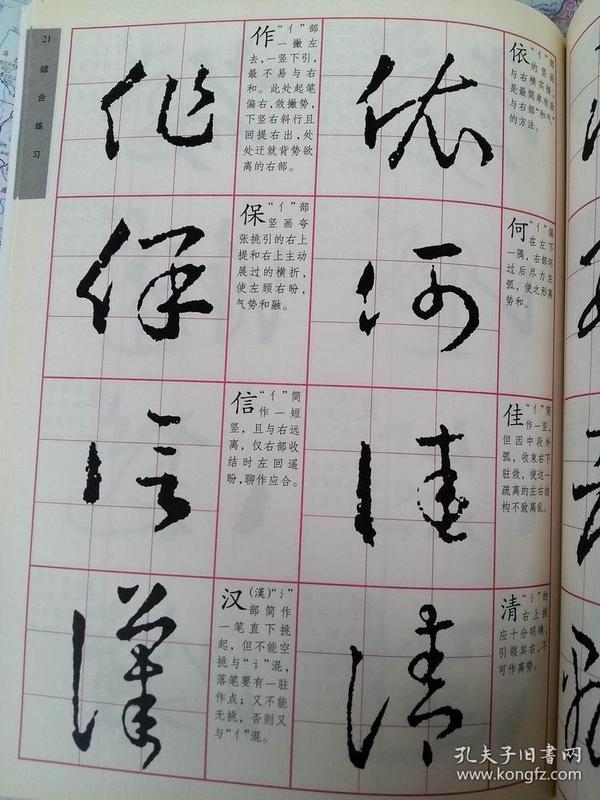 21
综合练习
作 “亻”部
一撇左
去，一竖下引，
最不易与右
和。此处起笔
偏右，敛撇势，
下竖右斜行且
回提右出，处
处迁就背势欲
离的右部。
依 “亻”部
的竖画
与右横实接，
是最简单有效
与右部“和气”
的方法。
保 “亻”部
竖画夸
张挑引的右上
提和右上主动
展过的横折，
使左顾右盼，
气势和融。
何 “亻”偏
在左下
一隅，右部环左
过后尽力左
弧，使之形离
势和。
信 “亻”简
作一短
竖，且与右远
离，仅右部收
结时左回遥
盼，聊作应合。
佳 “亻”简
作一竖，
但因中段外
弧，收束右下
驻敛，使这一
疏离的左右结
构不致离乱。
汉 (漢)“氵”
部简作
一笔直下挑
起，但不能空
挑与“讠”混，
落笔要有一驻
作点；又不能
无挑，否则又
与“亻”混。
清 “氵”的
右上挑
应十分明确，
引领其右，不
可作离势。
作
依
保
何
信
佳
漢
清
孔夫子旧书网
www.kongfz.com